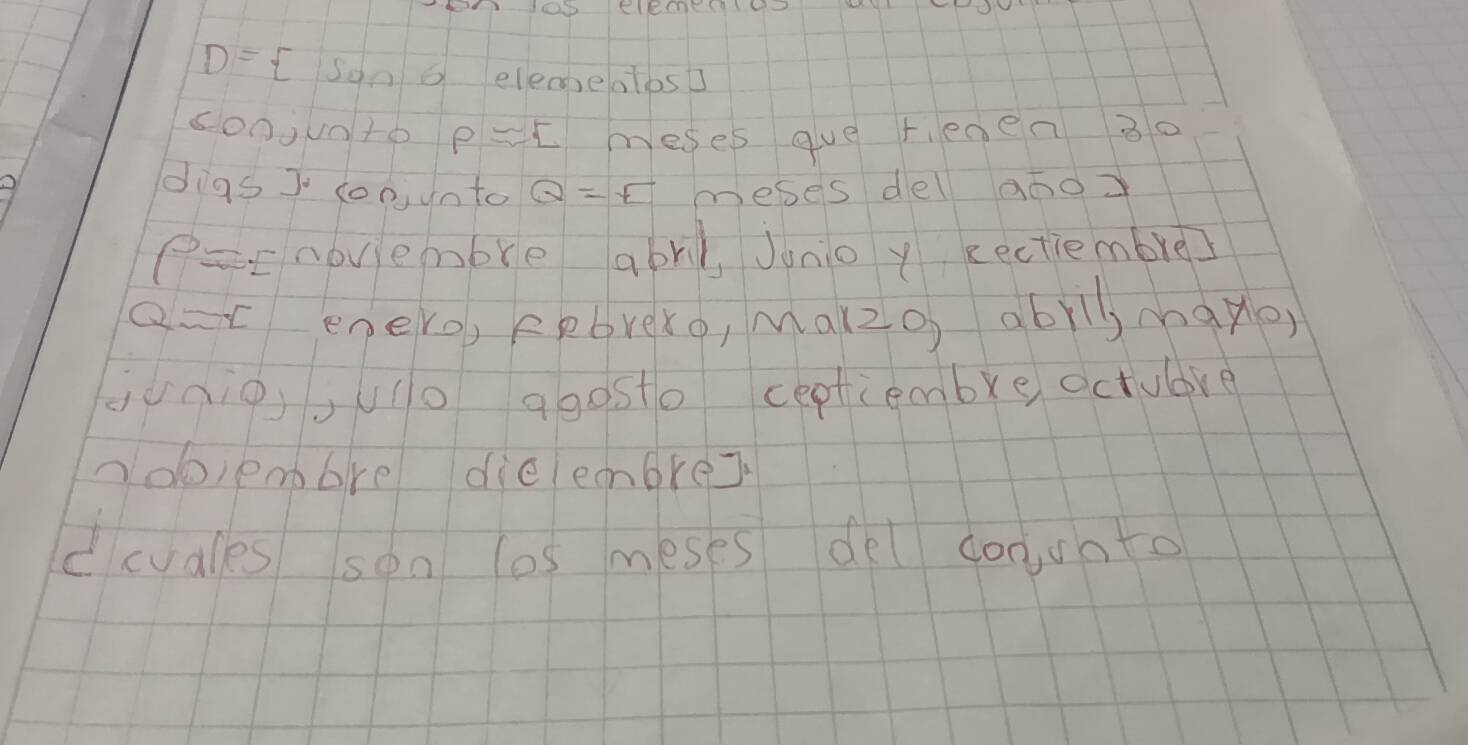 los elementos
D={ son 6 elementos}
conjunto p={ meses que tienen 30
dias}. conjunto Q={ meses del año}
P={ noviembre abril, Junio y cectiembre}
Q={ enero, Febrero, marzo, abril, mayo,
junio, julio agosto ceptiembre, octubre
nobiembre diciembre}.
¿ cuales son los meses del conjunto